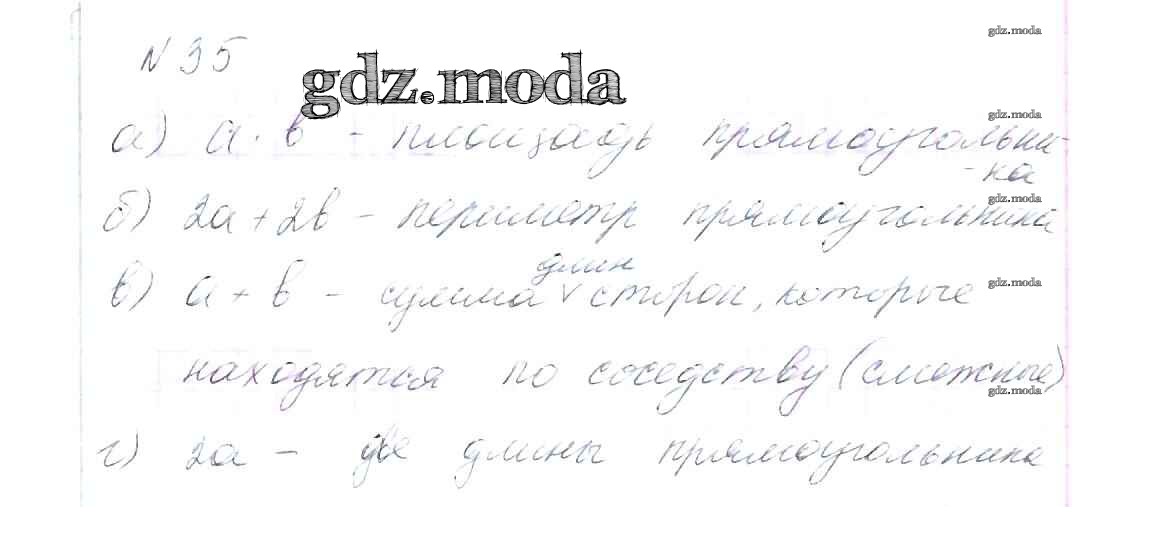 gdz.moda
N 35
gdz.moda
gdz.moda
а) a · b - площадь прямоугольни-
-ка
gdz.moda
б) 2a + 2b - периметр прямоугольника
длин
в) a + b - сумма v сторон, которые
gdz.moda
находятся по соседству (смежные)
gdz.moda
г) 2a - две длины прямоугольника